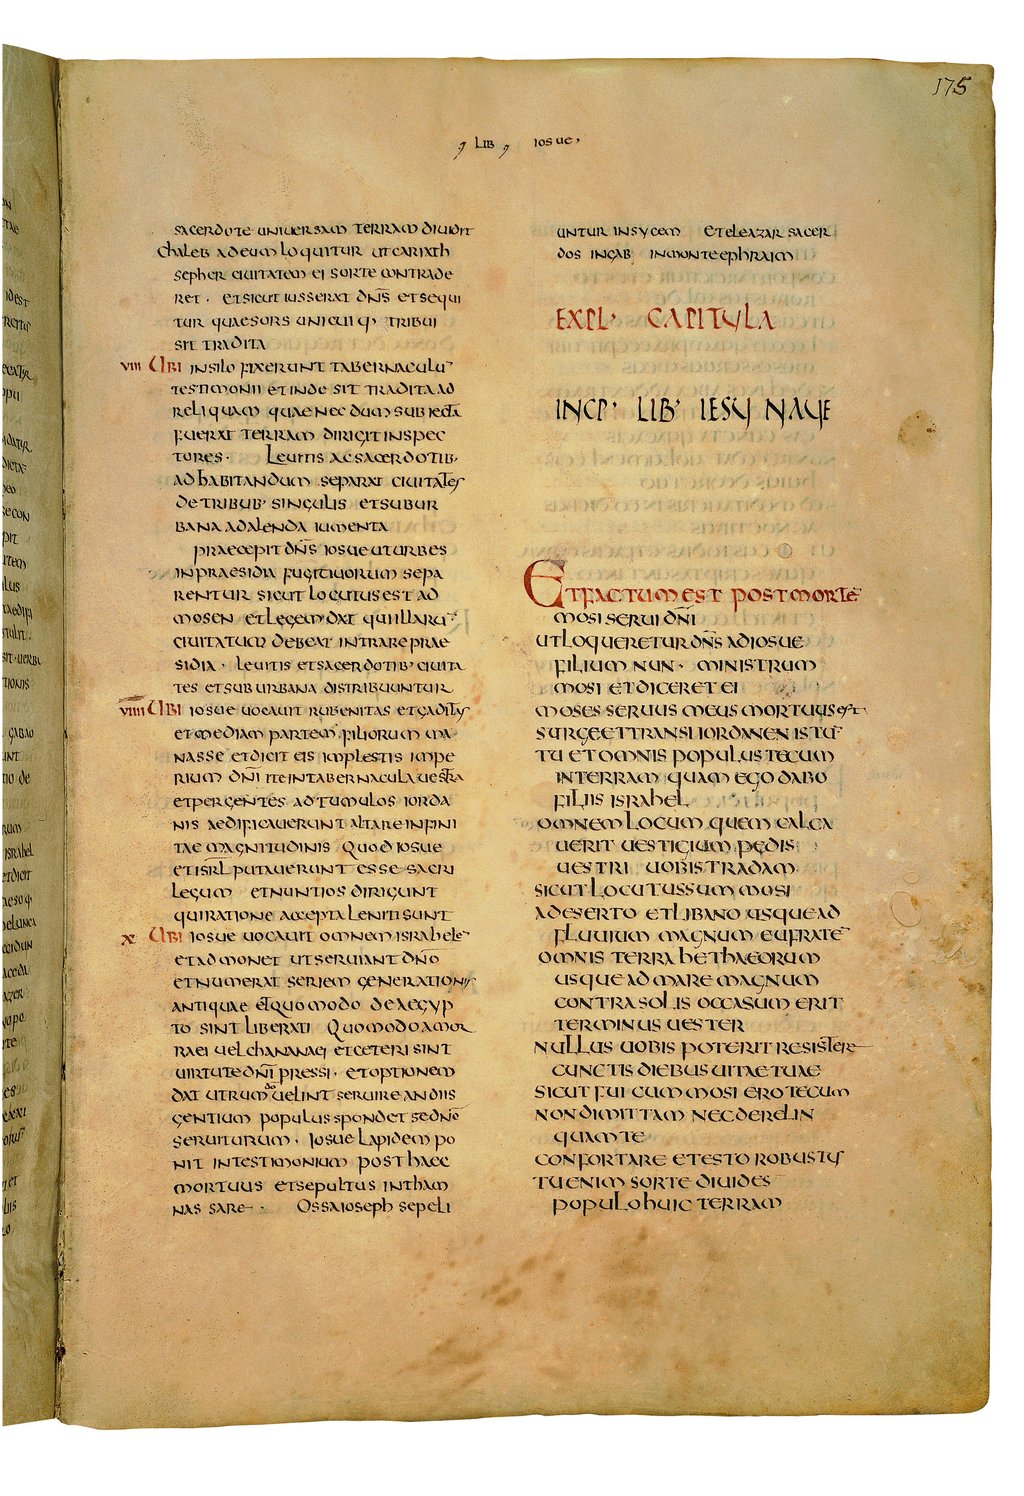 175
LIB IOSUE
SACERDOTE UNIUERSAM TERRAM DIUIDIT
CHALEB ADEUM LOQUITUR UT CARIATH
SEPHER CIUITATEM EI SORTE CONTRADE
RET · ET SICUT IUSSERAT DN̄S ET SEQUI
TUR QUAE SORS UNICUIQ· TRIBUI
SIT TRADITA
VIII UBI IN SILO FIXERUNT TABERNACULŪ
TESTIMONII ET INDE SIT TRADITA AD
RELIQUAM QUAE NEC DUM SUBIECTA
FUERAT TERRAM DIRIGIT INSPEC
TORES · LEUITIS AC SACERDOTIB·
AD HABITANDUM SEPARAT CIUITATES
DE TRIBUB· SINGULIS ET SUBUR
BANA AD ALENDA IUMENTA
PRAECEPIT DN̄S IOSUE UT URBES
IN PRAESIDIA FUGITIUORUM SEPA
RENTUR SICUT LOCUTUS EST AD
MOSEN ET LEGEM DAT QUI ILLARŪ
CIUITATUM DEBEAT INTRARE PRAE
SIDIA · LEUITIS ET SACERDOTIB· CIUITA
TES ET SUBURBANA DISTRIBUUNTUR
VIIII UBI IOSUE UOCAUIT RUBENITAS ET GADITAS
ET MEDIAM PARTEM FILIORUM MA
NASSE ET DICIT EIS IMPLESTIS IMPE
RIUM DN̄I ITE IN TABERNACULA UESTRA
ET PERGENTES AD TUMULOS IORDA
NIS AEDIFICAUERUNT ALTARE INFINI
TAE MAGNITUDINIS QUOD IOSUE
ET ISRL̄ PUTAUERUNT ESSE SACRI
LEGUM ET NUNTIOS DIRIGUNT
QUI RATIONE ACCEPTA LENITI SUNT
X UBI IOSUE UOCAUIT OMNEM ISRAHELE
ET ADMONET UT SERUIANT DN̄O
ET NUMERAT SERIEM GENERATIONIS
ANTIQUAE ET QUOMODO DE AEGYP
TO SINT LIBERATI QUOMODO AMOR
RAEI UEL CHANANAEI ET CETERI SINT
UIRTUTE DN̄I PRESSI · ET OPTIONEM
DAT UTRUM DO UELINT SERUIRE AN DIIS
GENTIUM POPULUS SPONDET SE DN̄O
SERUITURUM · IOSUE LAPIDEM PO
NIT IN TESTIMONIUM POST HAEC
MORTUUS ET SEPULTUS IN THAM
NAS SARE · OSSA IOSEPH SEPELI
UNTUR IN SYCEM ET ELEAZAR SACER
DOS IN GAB IN MONTE EPHRAIM
EXPL· CAPITULA
INCP· LIB· IESU NAUE
ET FACTUM EST POST MORTĒ
MOSI SERUI DN̄I
UT LOQUERETUR DN̄S AD IOSUE
FILIUM NUN · MINISTRUM
MOSI ET DICERET EI
MOSES SERUUS MEUS MORTUUS EST·
SURGE ET TRANSI IORDANEN ISTŪ
TU ET OMNIS POPULUS TECUM
IN TERRAM QUAM EGO DABO
FILIIS ISRAHEL
OMNEM LOCUM QUEM CALCA
UERIT UESTIGIUM PEDIS
UESTRI UOBIS TRADAM
SICUT LOCUTUS SUM MOSI
A DESERTO ET LIBANO USQUE AD
FLUUIUM MAGNUM EUFRATĒ
OMNIS TERRA HETHAEORUM
USQUE AD MARE MAGNUM
CONTRA SOLIS OCCASUM ERIT
TERMINUS UESTER
NULLUS UOBIS POTERIT RESISTERE
CUNCTIS DIEBUS UITAE TUAE
SICUT FUI CUM MOSI ERO TECUM
NON DIMITTAM NEC DERELIN
QUAM TE
CONFORTARE ET ESTO ROBUSTUS
TU ENIM SORTE DIUIDES
POPULO HUIC TERRAM